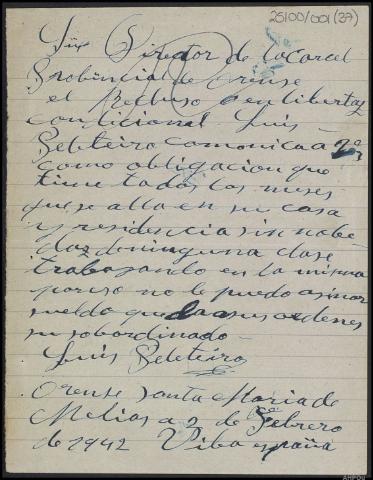 25100/001(37)
Sr Director de la Carcel
Probincial de Orense
el Recluso en libertaz
condicional Luis
Peleteiro comunica a
como obligacion que
tiene todos los meses
que se alla en su casa
y residencia sin nobe
daz de ninguna clase
trabajando en la misma
por eso no le puedo asinar
sueldo queda a sus ordenes
su sobordinado
Luis Peleteiro
Orense Santa Maria de
Melias a 2 de Febrero
de 1942 Viba españa
AHPOu